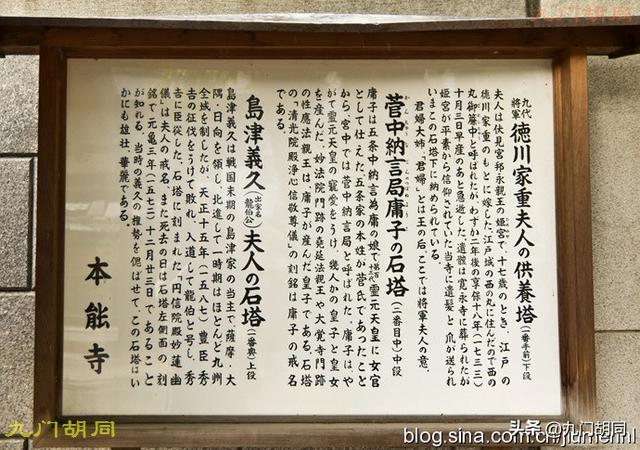 九代将軍 徳川家重夫人の供養塔(一番手前)下段
夫人は伏見宮邦永親王の姫宮で、十七歳のとき、江戸の
徳川家重のもとに嫁した。江戸城の西の丸に住んだので西の
丸御簾中と呼ばれたが、わずか二年後の享保十八年(一七三三)
十月三日早産のあと急逝した。遺骸は寛永寺に葬られたが
姫宮が平素から信仰されていた当寺に遺髪と爪が送られ
いまこの石塔下に納められている。
「君婦大姉」「君婦」とは王の后、ここでは将軍夫人の意。
菅中納言局庸子の石塔(二番目中)中段
庸子は五条中納言為庸の娘で霊元天皇に女官
として仕えた。五条家の本姓が菅氏であったこと
から、宮中では菅中納言局と呼ばれた。庸子はや
がて霊元天皇の寵愛をうけ、幾人かの皇子と皇女
を産んだ。妙法院門跡の尭延法親王や大覚寺門跡
の性應法親王は、庸子が産んだ皇子である。石塔
の「清光院殿浄心信敬尊儀」の刻銘は庸子の戒名
である。
島津義久(出家名龍伯公)夫人の石塔(一番奥)上段
島津義久は戦国末期の島津家の当主で、薩摩・大
隅・日向を領し、北進して一時期はほとんど九州
全域を制したが、天正十五年(一五八七)豊臣秀
吉の征伐をうけて敗れ、入道して龍伯と号し、秀
吉に臣従した。石塔に刻まれた「円信院殿妙蓮幽
儀」は夫人の戒名、また死去の日は石塔左側面の刻
銘で元亀三年(一五七二)十二月廿三日であること
が知れる。当時の義久の権勢を偲ばせて、この石塔はい
かにも雄壮、華麗である。
本能寺
九门胡同
头条 @九门胡同
blog.sina.com.cn/jiumenhl